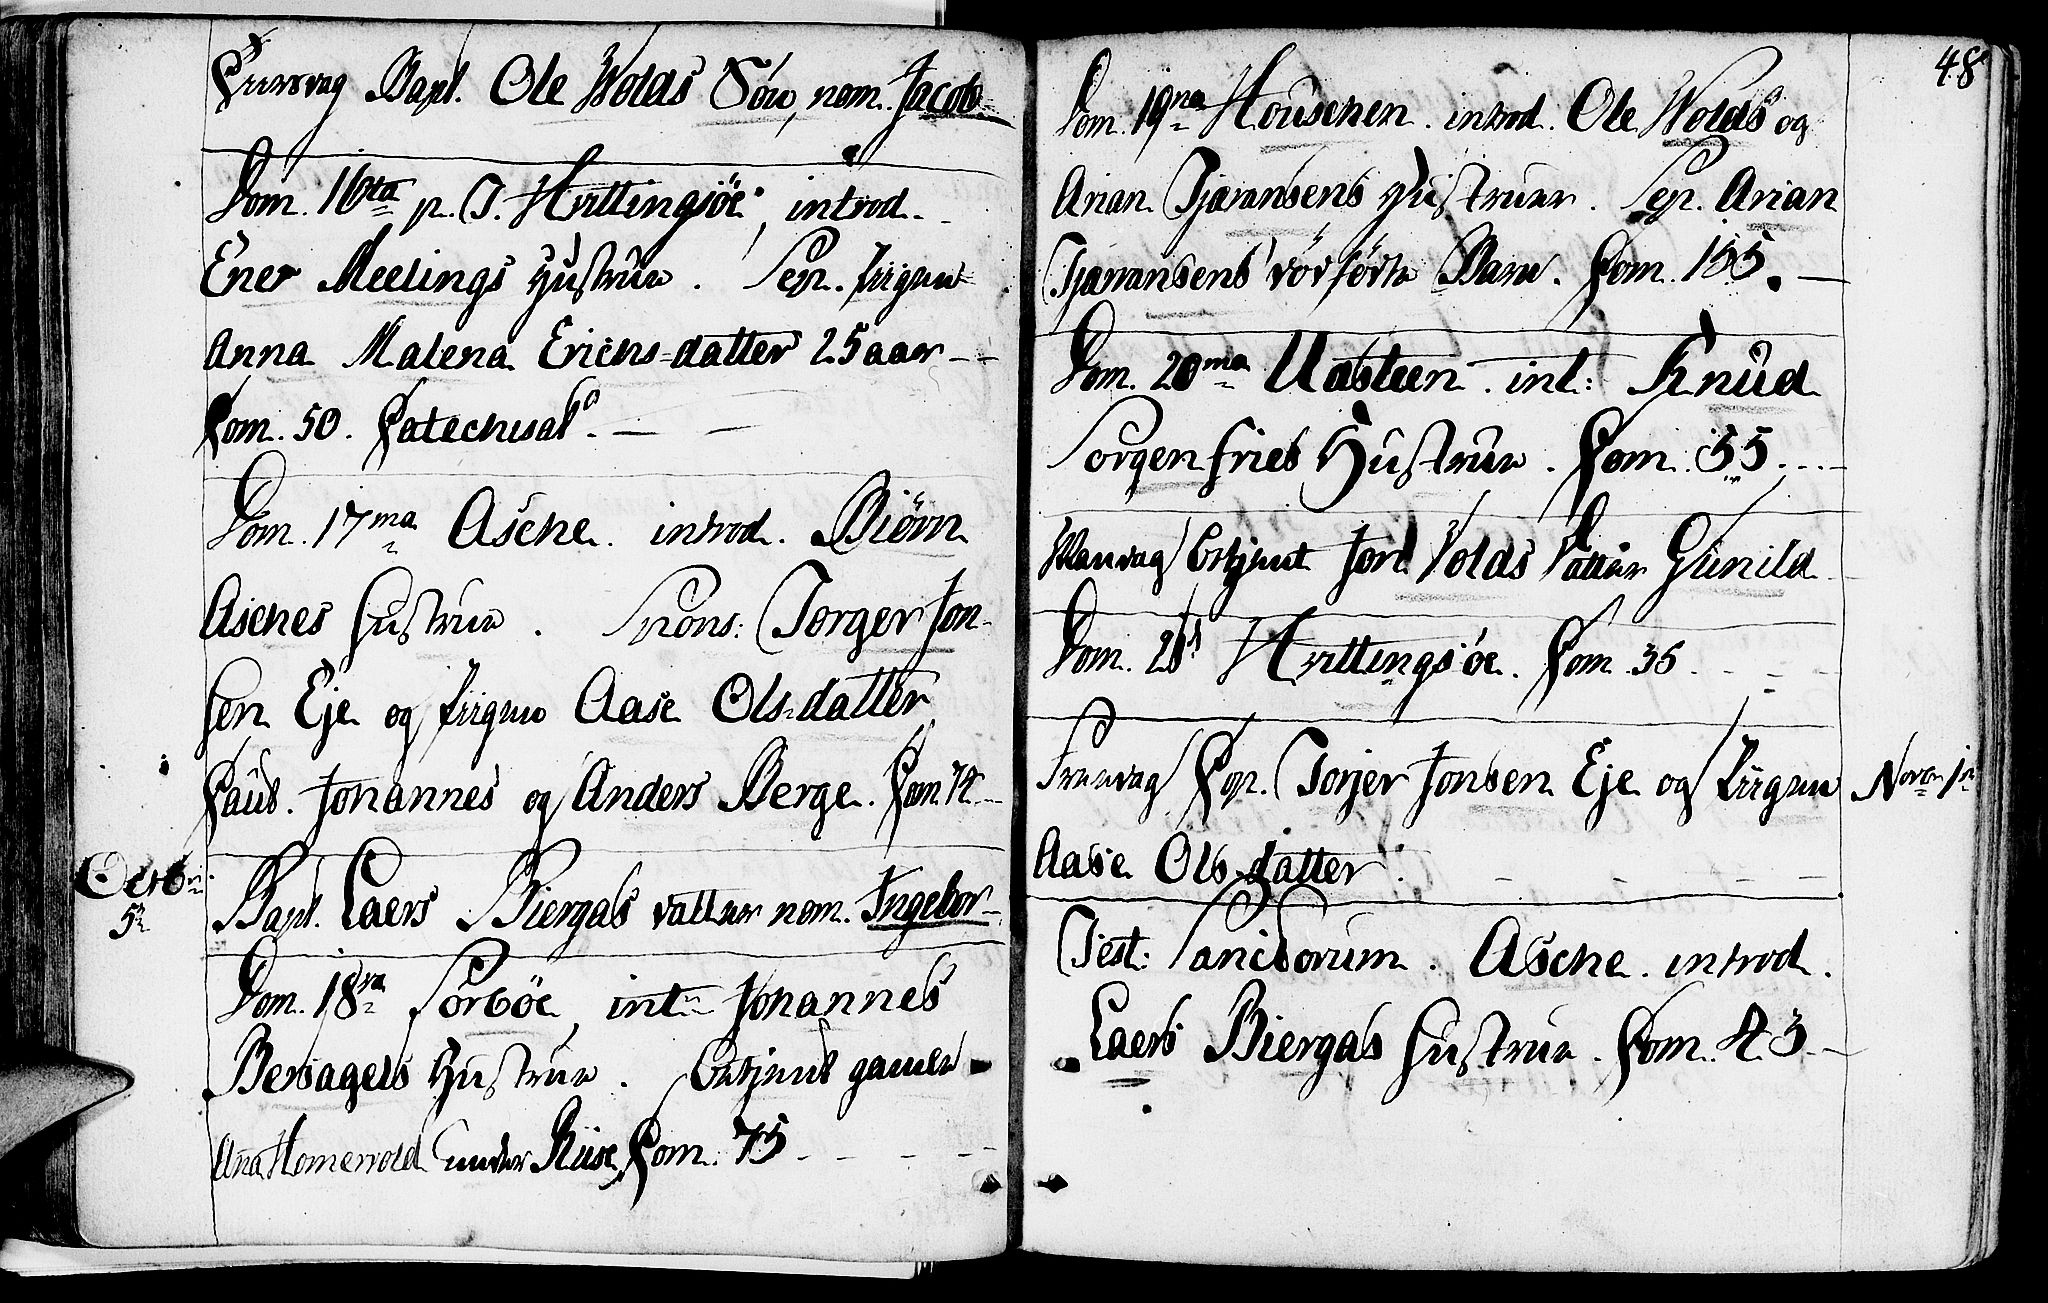 Tiirsdag Bapt. Ole Wolds Sön, nom. Jacob.
Dom. 16ta p. T. Hvittingsöe, introd.
Ener Meelings Hustrue. Sep. Piigen
Anna Malena Erichs-datter 25 aar
Com. 50. Catechisat.
Dom. 17ma Asche. introd. Biörn
Asches Hustrue. Spons: Torger Jon-
sen Eje og Piigen Aase Ols-datter
Caut. Johannes og Anders Berge. Com. 74
Octobr.
5te
Bapt. Laers Biergas datter nom. Ingebor
Dom. 18va Sörböe, int. Johannes
Bersagels Hustrue. Begravet gamle
Ana Homersold under Riise Com. 75
48
Dom. 19na Houschen. introd. Ole Wolds og
Arian Tjæransens Hustruer. Sep. Arian
Tjæransens dödfödte Barn. Com. 155.
Dom. 20ma Uasteen. int: Knud
Sorgenfries Hustrue. Com. 55.
Mandag Jord Volds datter Gunild
Dom. 21 Hvittingsöe. Com. 35
Fredag Cop. Torjer Jonsen Eje og Piigen
Novr. 1
Aase Ols-datter.
Fest: Sanctorum. Asche. introd.
Laers Biergas Hustrue. Com. 43